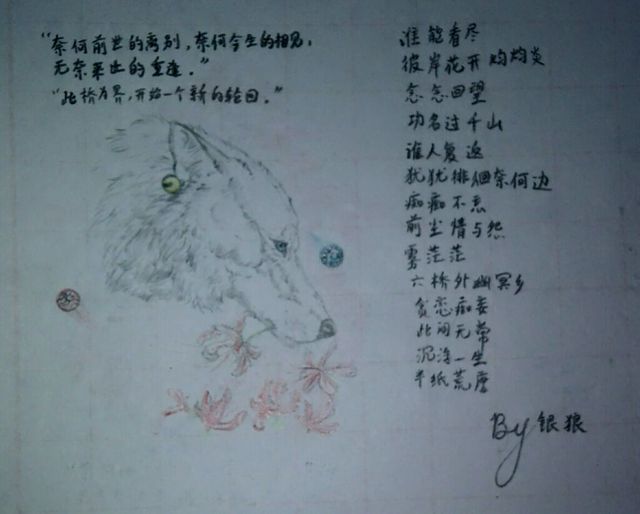 “奈何前世的离别，奈何今生的相见，
无奈来世的重逢。”
“此桥为界，开始一个新的轮回。”
谁能看尽
彼岸花开 灼灼炎
忽忽回望
功名过千山
谁人复返
犹犹徘徊奈何边
痴痴不忘
前尘情与怨
雾茫茫
六桥外幽冥乡
贪恋痴妄
此间无常
沉浮一生
半纸荒唐
By 银狼